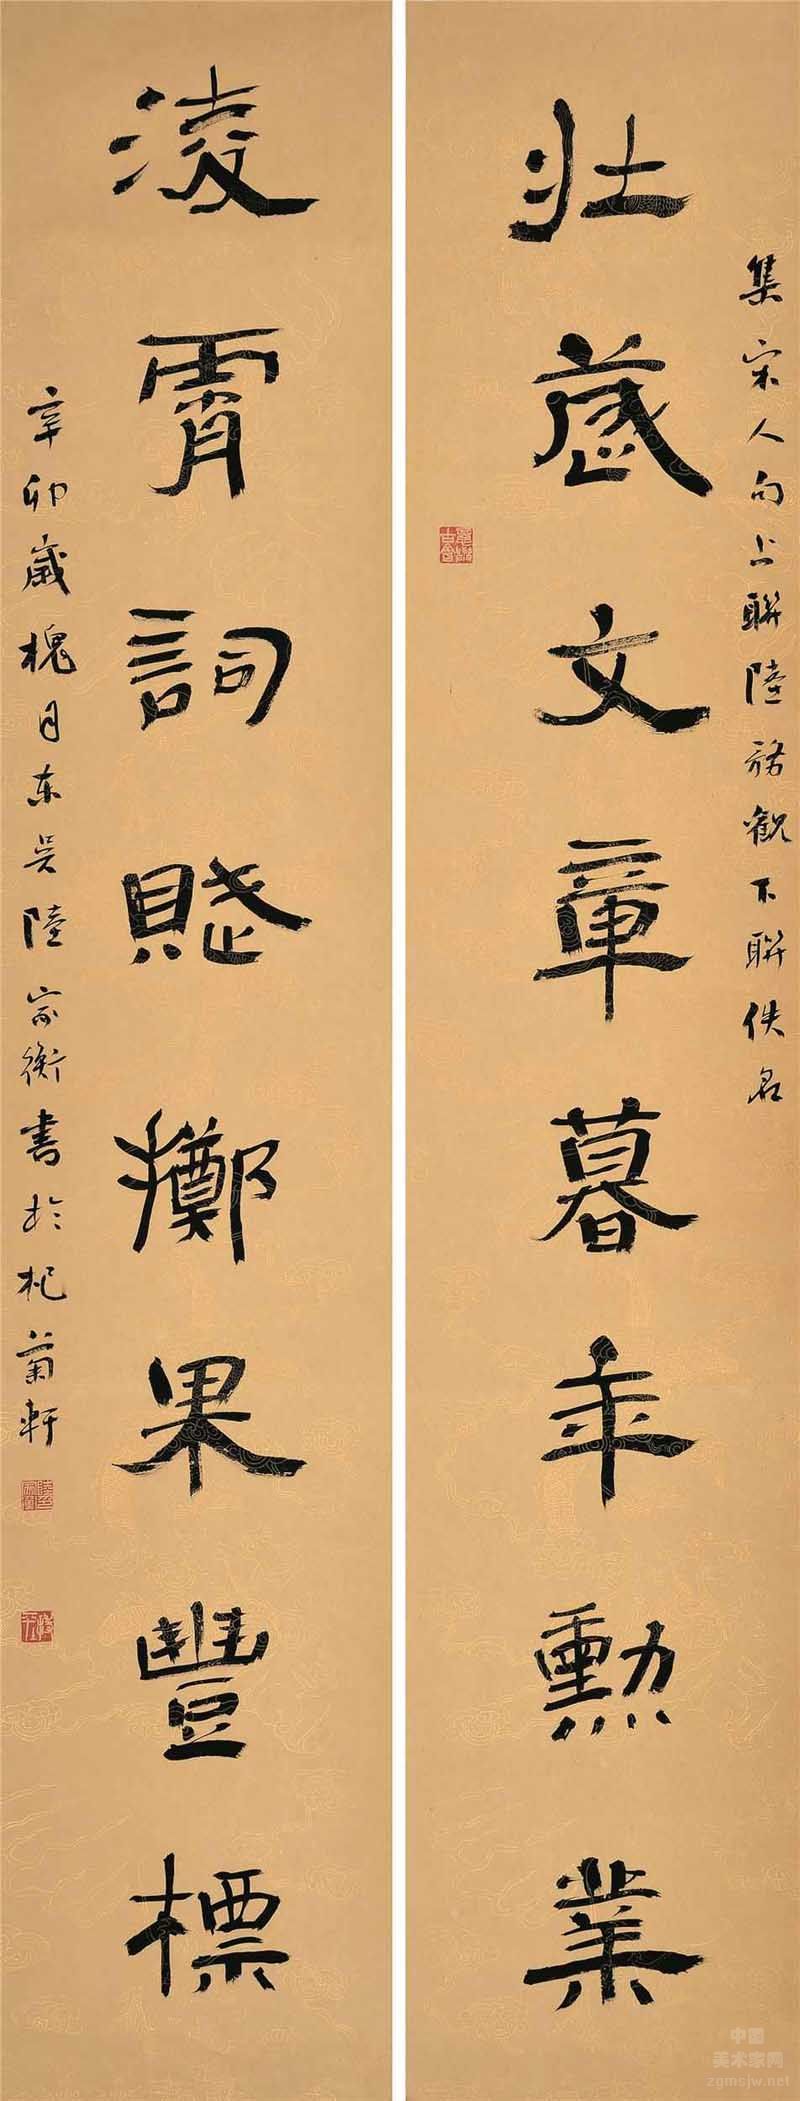 集宋人句上聯陸務觀下聯佚名
壯歲文章暮年勳業
凌霄詞賦擲果豐標
辛卯歲槐月东吴陸家衡書於杞菊軒
中国
美术家网
zgmsjw.net